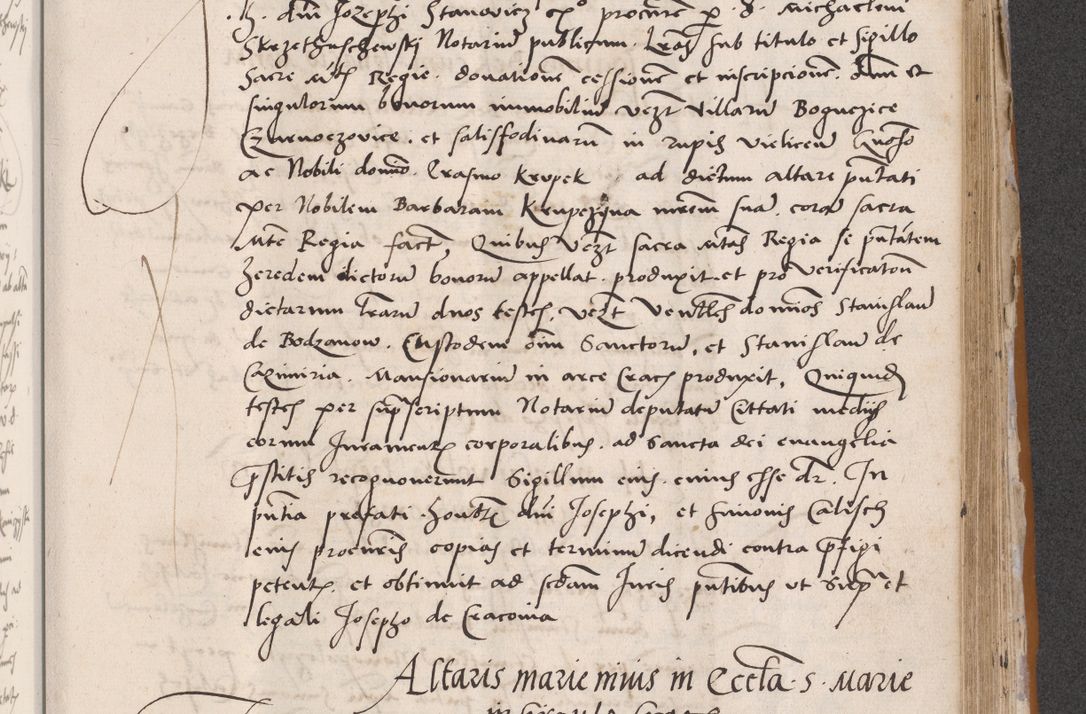 .H. dnı Jozephi Stanovicz cꝫ procurē p. d. Michaelem
Skrzethuschewskj Notariū publicum. Lras sub titulo et sigillo
Sacre Mtis Regie. donationē cessionē et inscripcionē. Oim et
singulorum bonorum immobiliū vezt villarū Boguczice
Czarnoczovice. et salisfodinarū in zupis vieliceñ
ac Nobili domō. Erasmo Krupek ad dictum altare pntati
per Nobilem Barbaram Krupczyna mrem suā. corā sacra
Mte Regia fact. Quibus vezt sacra Mtas Regia se pntatem
heredem dictorū bonorū appellat. produxit. et pro verificatoñ
dictarum lrarū duos testes, vezt venbles dominos Stanislaū
de Bodzanow. Custodem oīm Sanctorū, et Stanislaū de
Cazimiria. Mansionariū in arce Crac produxit, Quiquidē
testes per suprascriptum Notariū deputatū Cittati medijs
eorum Juramentꝫ corporalibus. ad sancta dei euangelia
prestitis recognoverunt Sigillum eius. cuius esse dr. In
pntia prefati honblꝫ dni Josephi, et Simonis Calisch
eius procuris copias et terminū dicendi contra prefigi
petentꝫ. et obtinuit ad scdam Juris pntibus ut supra et
legali Josepho de Cracovia
Altaris marie mius in Eccla. S. Marie